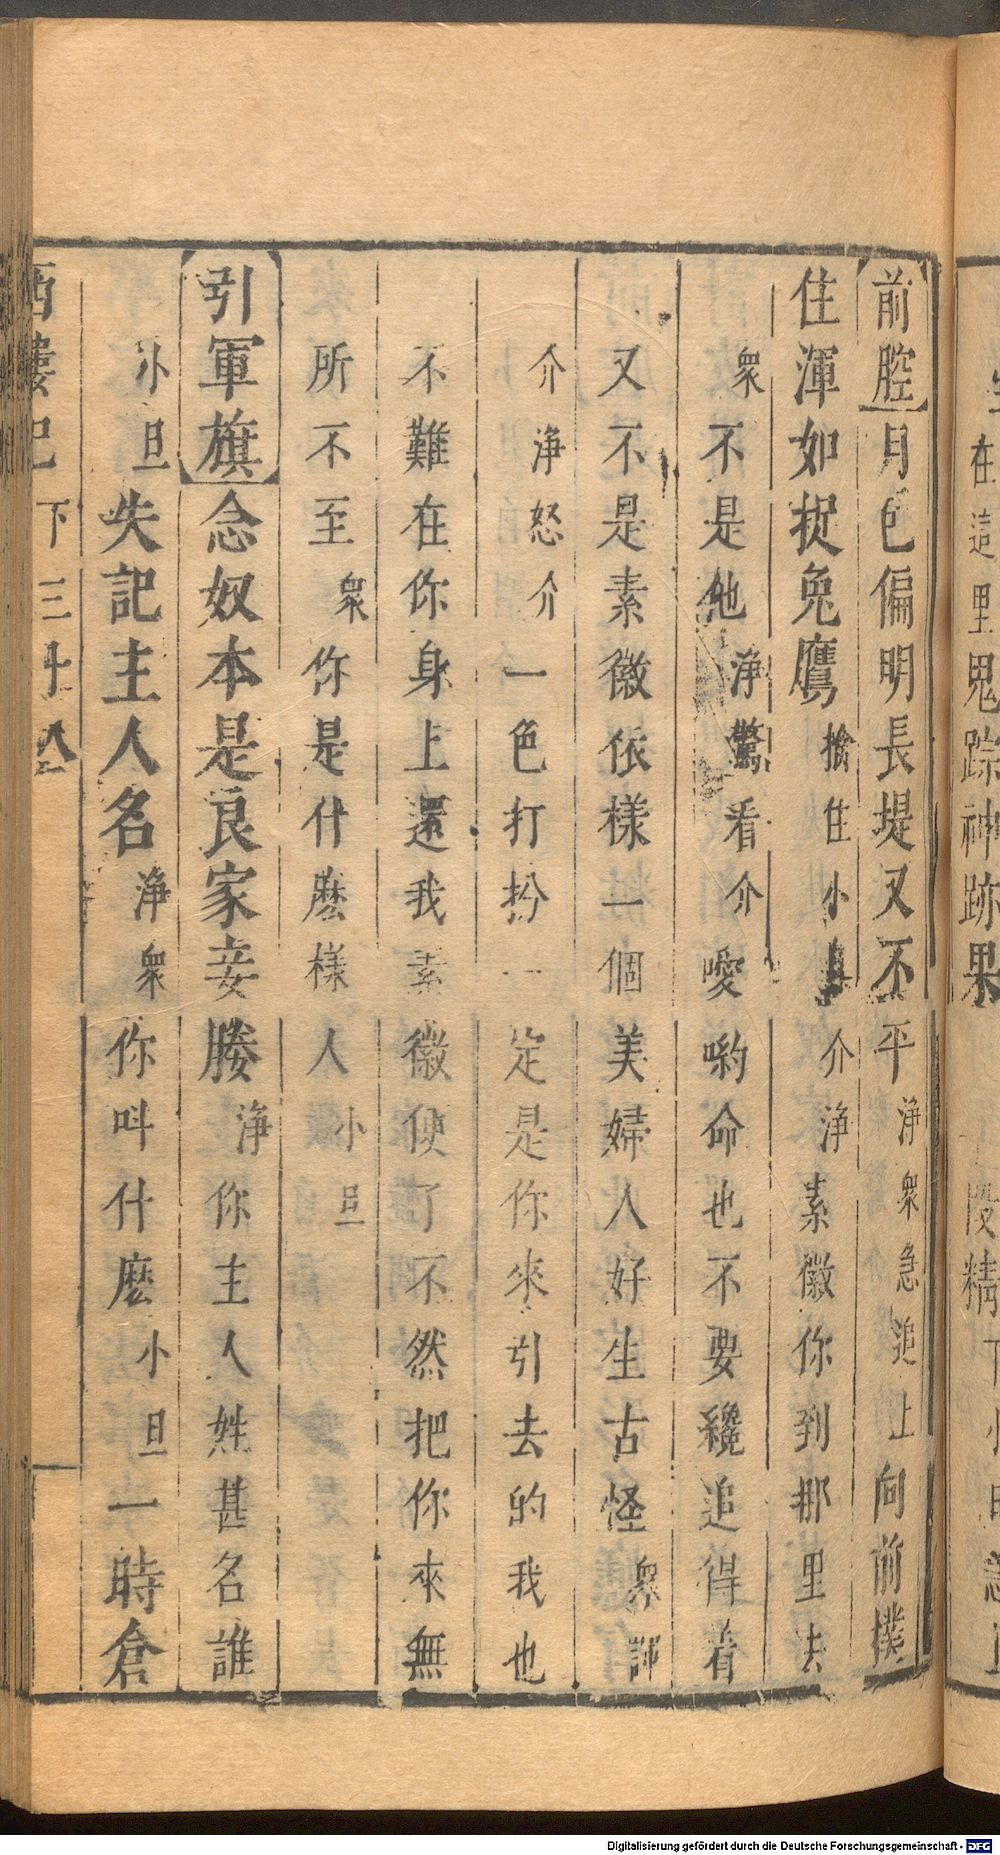 在這里鬼踪神跡果
精下
前腔月色偏明長堤又不平淨衆急追上向前撲
住渾如捉兔鷹搶住小旦介淨素徽你到那里去
衆不是他淨驚看介噯喲命也不要纔追得着
又不是素徽依樣一個美婦人好生古怪衆諢
介淨怒介一色打扮一定是你來引去的我也
不難在你身上還我素徽便了不然把你來無
所不至衆你是什麽樣人小旦
引軍旗念奴本是良家妾媵淨你主人姓甚名誰
小旦失記主人名淨衆你叫什麽小旦一時倉
西樓記下三十八
Digitalisierung gefördert durch die Deutsche Forschungsgemeinschaft - DFG